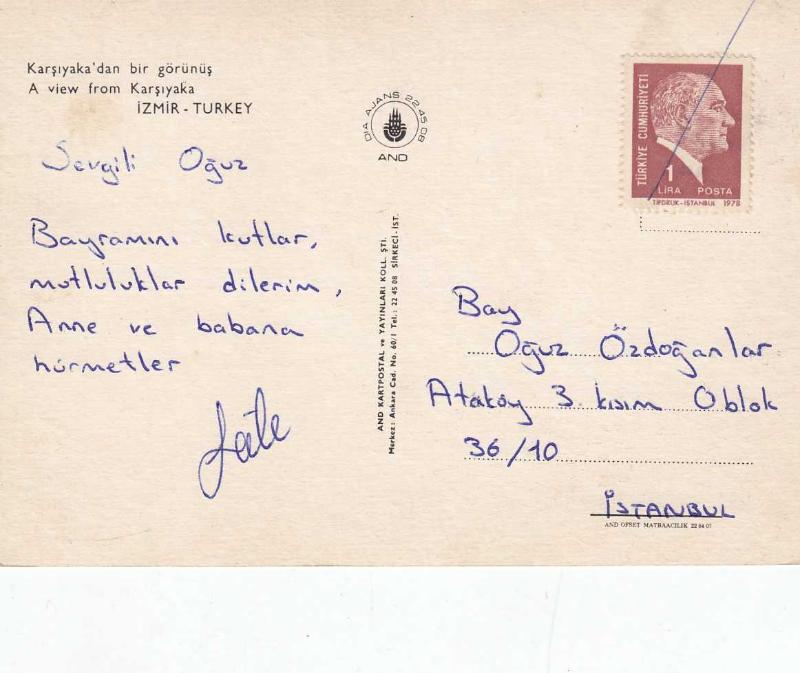 Karşıyaka'dan bir görünüş
A view from Karşıyaka
İZMİR - TURKEY
Sevgili Oğuz
Bayramını kutlar,
mutluluklar dilerim,
Anne ve babana
hürmetler
DIA AJANS 22 45 08
AND
AND KARTPOSTAL ve YAYINLARI KOLL. ŞTİ.
Merkez: Ankara Cad. No. 60/1 Tel.: 22 45 08 SİRKECİ-İST.
TÜRKİYE CUMHURİYETİ
1
LİRA POSTA
TİFDRUK-İSTANBUL 1978
Bay
Oğuz Özdoğanlar
Ataköy 3. kısım O blok
36/10
İSTANBUL
AND OFSET MATBAACILIK 22 84 07